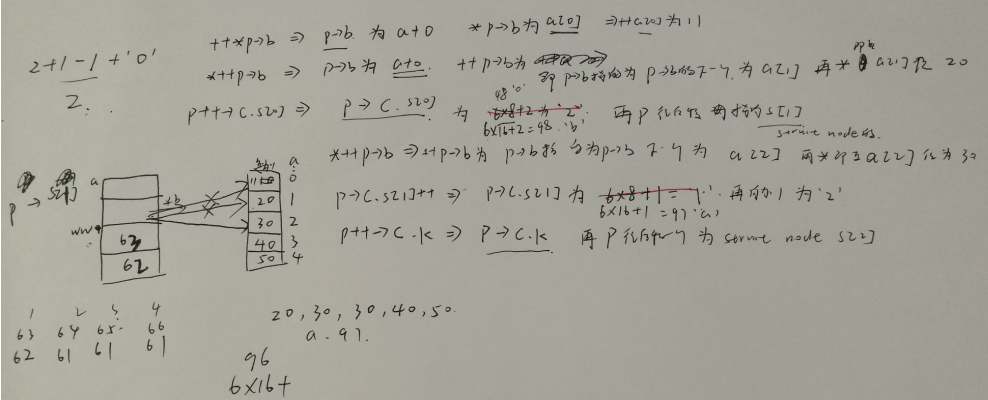 2+1-1+'0'
2.
++*p→b ⇒ p→b 为 a+0 *p→b为 a[0] ⇒++a[0]为 11
*++p→b ⇒ p→b为 a+0. ++p→b为
即 p→b指 为 p→b的下一个.为 a[1] 再* 即在 a[1] 是 20
p++→C.s[0] ⇒ p→C.s[0] 为 6×8+2为'2' 再P 往后 s[1]
48'0'
6×16+2=98.'b'
struct node的.
*++p→b ⇒++p→b为 p→b指 为p→b 下一个 为 a[2] 再*即在a[2] 为30
p→C.s[1]++ ⇒ p→C.s[1]为 6×8+1='1' 再 加1 为'2'
6×16+1=97'a'
p++→C.k ⇒ p→C.k 再P往后 一个为 struct node s[2]
p → s[1]
a
*b
www
63
62
a
11 0
20 1
30 2
40 3
50 4
1 2 3 4
63 64 65 66
62 61 61 61
20, 30, 30, 40, 50.
a. 97.
96
6×16+